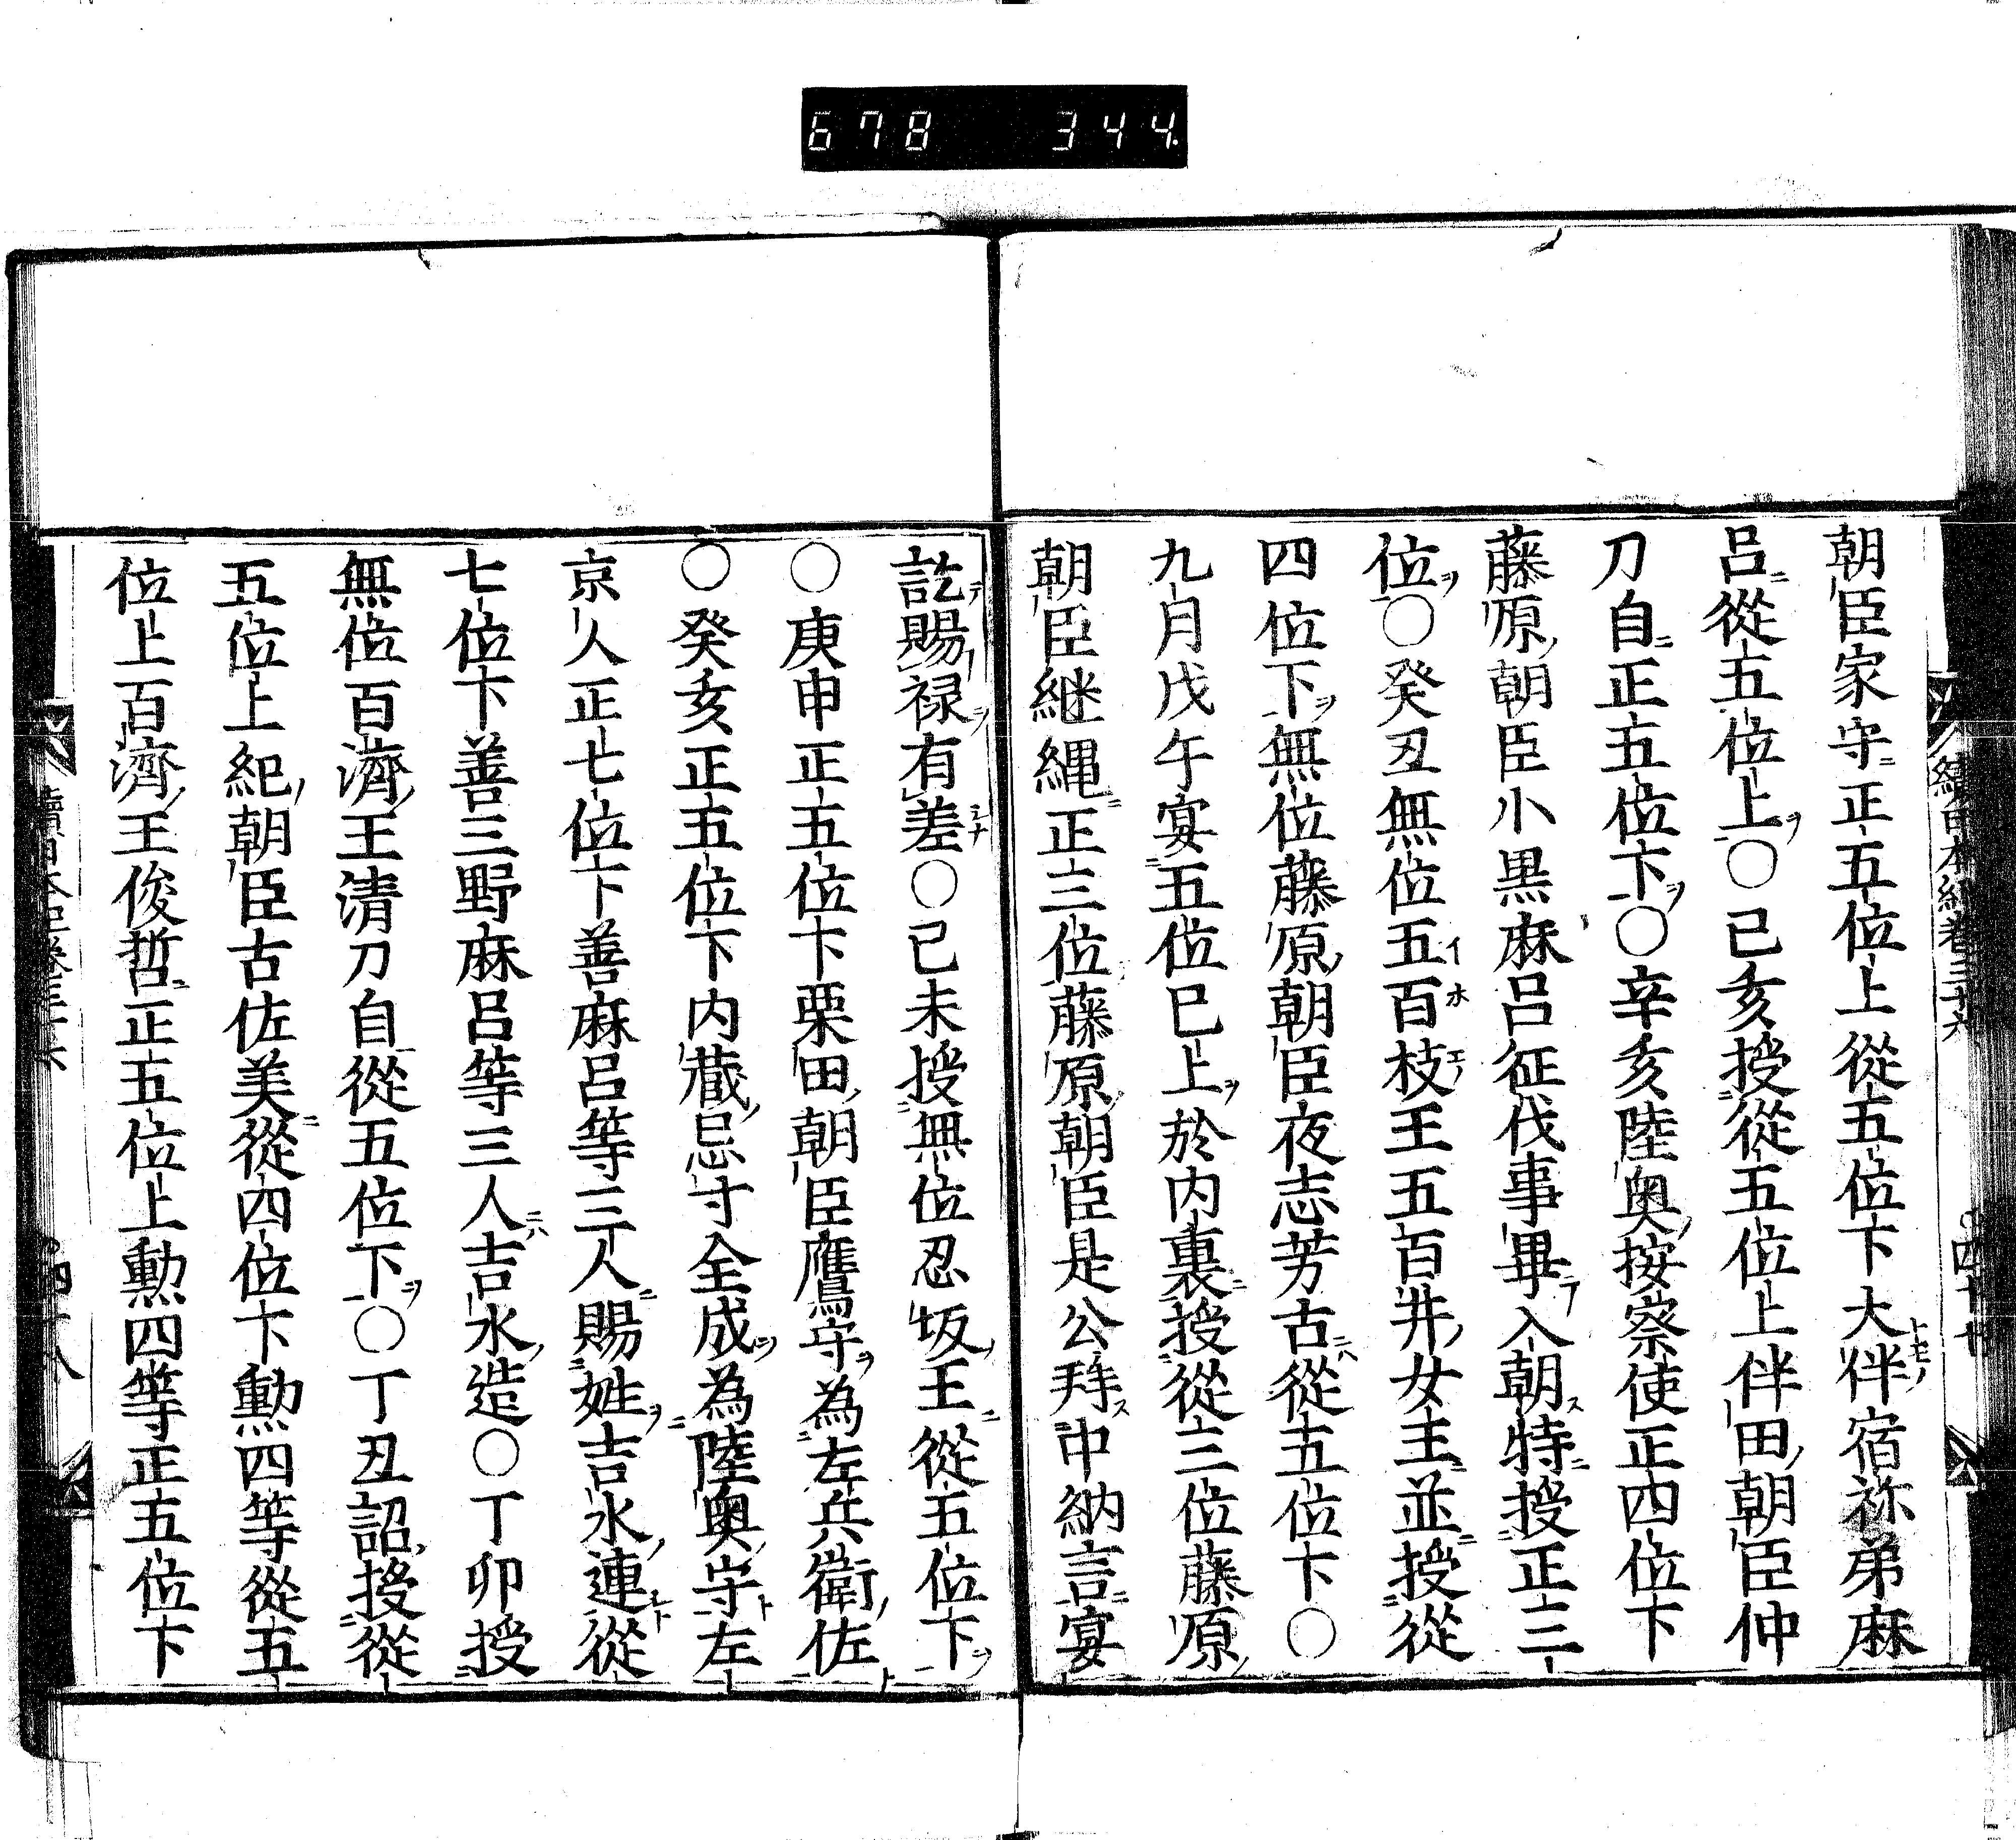 678 344.
續日本紀卷三十六
四十七
朝臣家守正五位上從五位下大伴宿祢弟麻
呂從五位上〇己亥授從五位上伴田朝臣仲
刀自正五位下〇辛亥陸奥按察使正四位下
藤原朝臣小黒麻呂征伐事畢入朝特授正三
位〇癸丑無位五百枝王五百井女王並授從
四位下無位藤原朝臣夜志芳古從五位下〇
九月戊午宴五位已上於内裏授從三位藤原
朝臣継縄正三位藤原朝臣是公拜中納言宴
訖賜禄有差〇己未授無位忍坂王從五位下
〇庚申正五位下栗田朝臣鷹守為左兵衛佐
〇癸亥正五位下内藏忌寸全成為陸奥守左
京人正七位下善麻呂等三人賜姓吉水連從
七位下善三野麻呂等三人吉水造〇丁卯授
無位百濟王清刀自從五位下〇丁丑詔授從
五位上紀朝臣古佐美從四位下勳四等從五
位上百濟王俊哲正五位上勳四等正五位下
續日本紀卷三十六
四十八